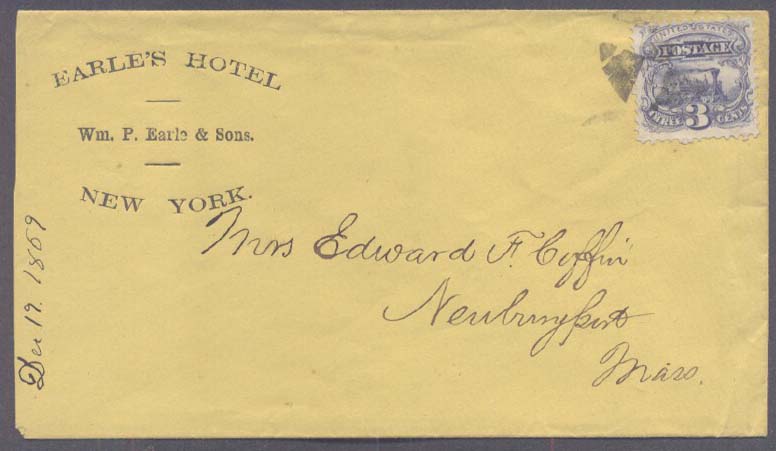 EARLE'S HOTEL
Wm. P. Earle & Sons.
NEW YORK.
UNITED STATES
POSTAGE
3
THREE CENTS
Mrs Edward F. Coffin
Newburyport
Mass.
Dec 19. 1869